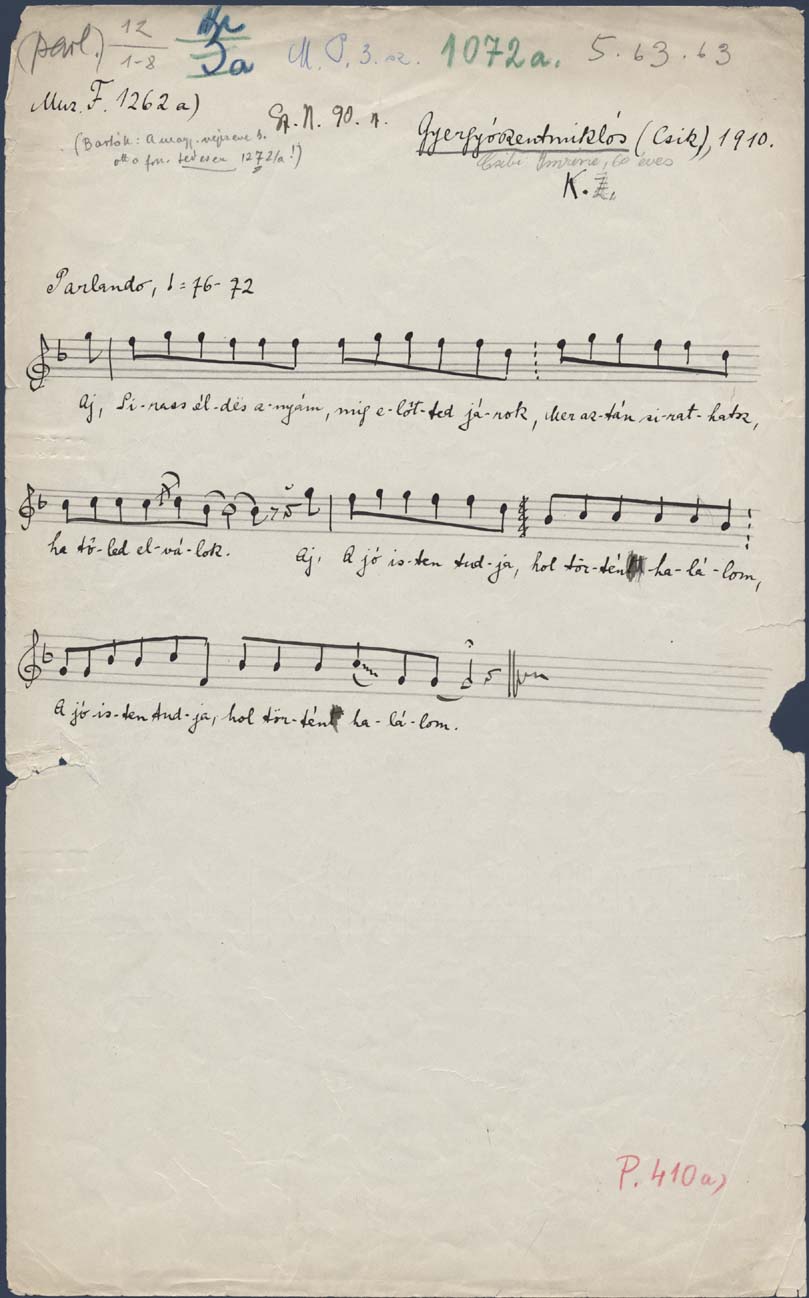 (parl.) 12/1-8 3a M. P. 3. sz. 1072a. 5. b3. b3
Muz. F. 1262 a)
Gy. N. 90. n.
(Bartók: A magy. népzene b.
fon. tévesen 1272/a!)
Gyergyószentmiklós (Csik), 1910.
Csibi Imréné, 60 éves
K. Z.
Parlando, ♩= 76-72
Aj, Si-rass él-dës a-nyám, mig e-lőt-ted já-rok, Mer az-tán si-rat-hatsz,
ha tő-led el-vá-lok. Aj, A jó is-ten tud-ja, hol tör-tén -ha-lá-lom,
A jó is-ten tud-ja, hol tör-tén ha-lá-lom.
P. 410a)